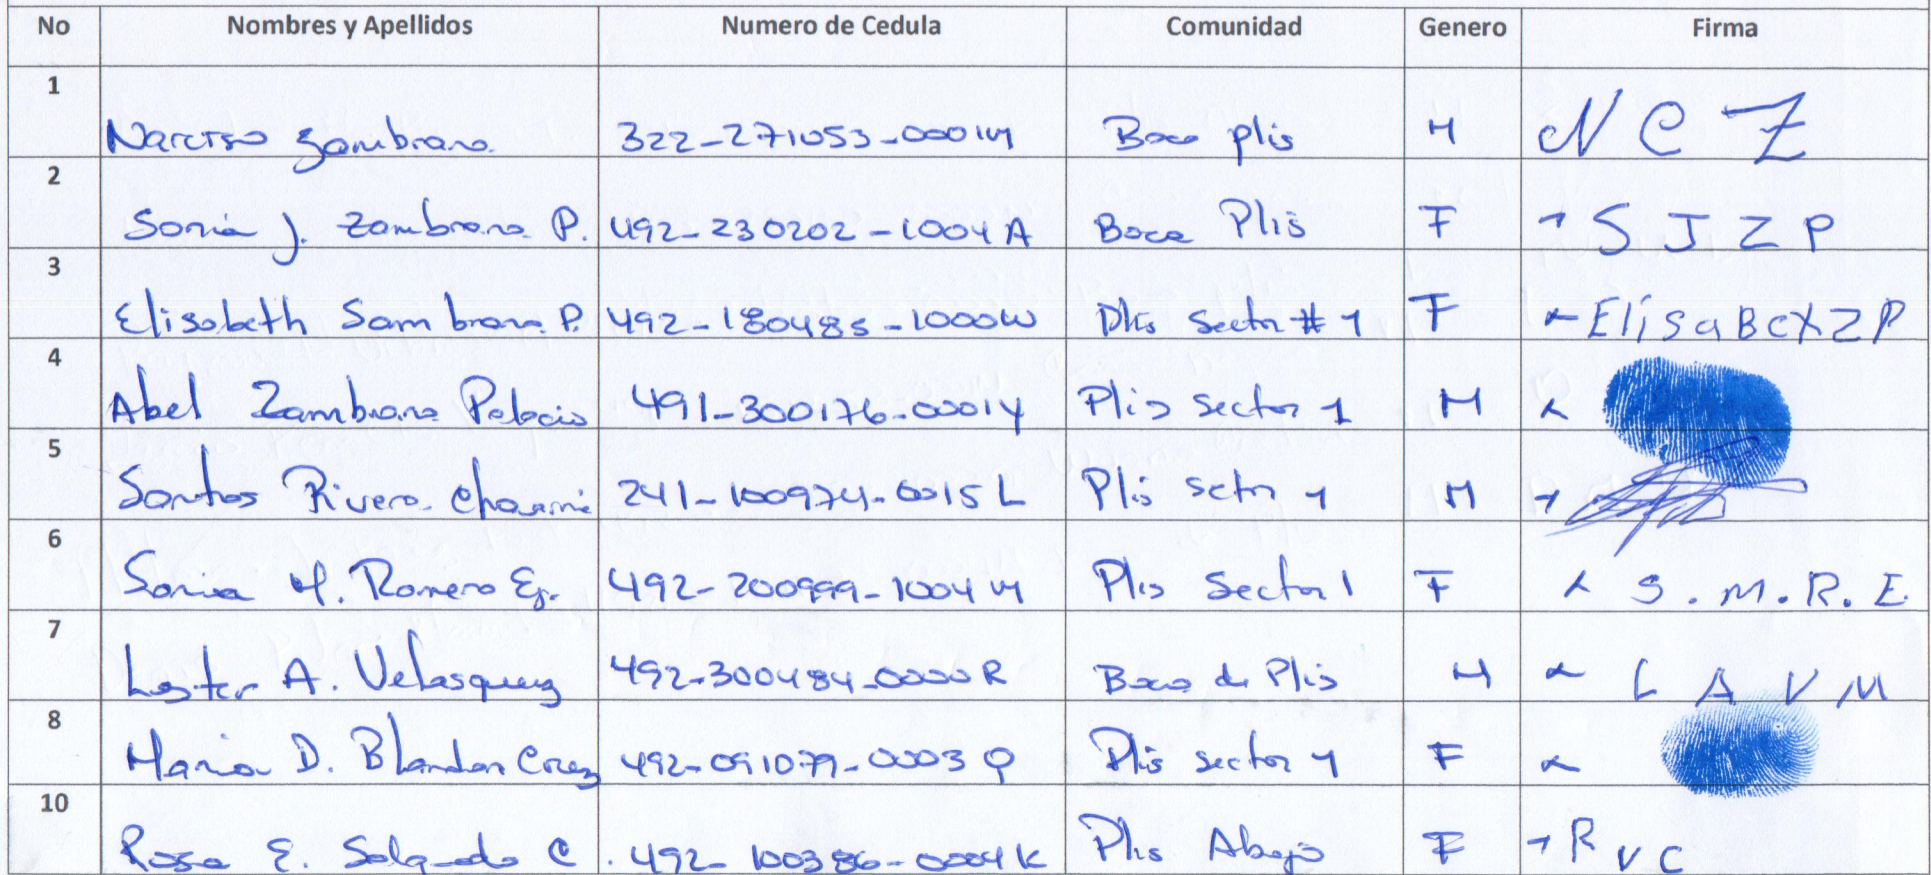 No Nombres y Apellidos Numero de Cedula Comunidad Genero Firma
1 Narciso Zambrana 322-271053-0001M Boca plis M N C Z
2 Sonia J. Zambrana P. 492-230202-1004A Boca Plis F S J Z P
3 Elisabeth Sambrana P. 492-180485-1000W Plis Sector #1 F ElisaBeXZP
4 Abel Zambrana Palacio 491-300176-0001Y Plis Sector 1 M
5 Santos Rivera 241-100974-0015L Plis Sctor 1 M
6 Sonia M. Romero 492-200999-1004M Plis Sector 1 F S.M.R.E.
7 Lester A. Velasquez 492-300484-0000R Boca de Plis M L A V M
8 Maria D. Blandon Cruz 492-091079-0003Q Plis Sector 1 F
10 Rosa E. Salgado C. 492-100386-0004K Plis Abajo F R V C